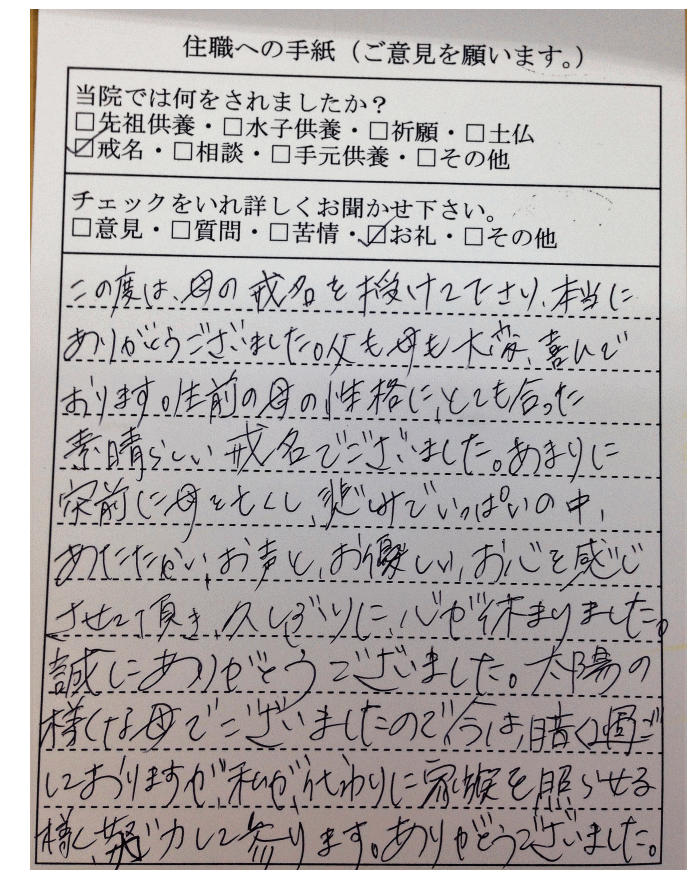 住職への手紙（ご意見を願います。）
当院では何をされましたか？
□先祖供養・□水子供養・□祈願・□土仏
☑戒名・□相談・□手元供養・□その他
チェックをいれ詳しくお聞かせ下さい。
□意見・□質問・□苦情・☑お礼・□その他
この度は、母の戒名を授けて下さり、本当に
ありがとうございました。父も母も大変、喜んで
おります。生前の母の性格に、とても合った
素晴らしい戒名でございました。あまりに
突前に母を亡くし、悲しみでいっぱいの中、
あたたかい、お声と、お優しい、お心を感じ
させて頂き、久しぶりに、心が休まりました。
誠にありがとうございました。太陽の
様な母でございましたので今は、暗く過ご
しておりますが、私が、代わりに家族を照らせる
様、努力して参ります。ありがとうございました。